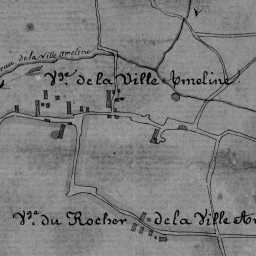 eau de la Ville Ameline
V.ge de la Ville Ameline
V.ge du Rocher de la Ville Am